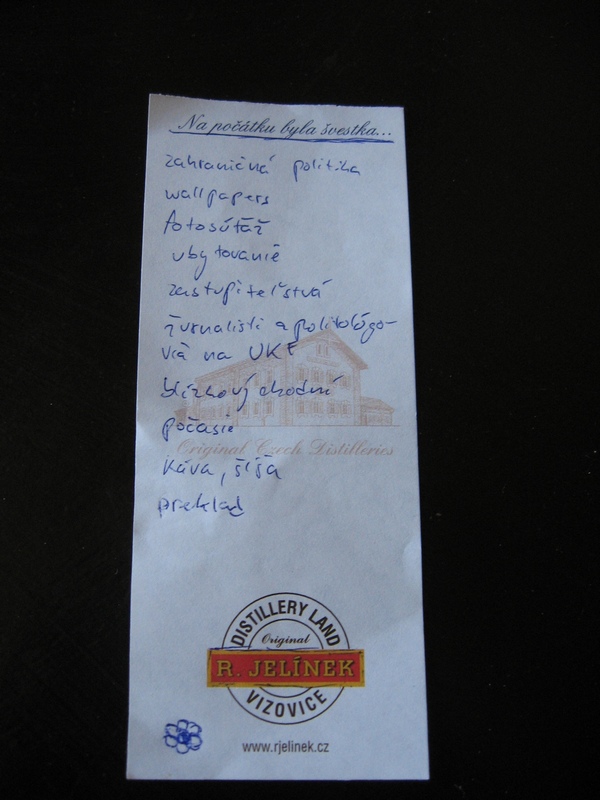 Na počátku byla švestka...
zahraničná politika
wallpapers
fotosúťaž
ubytovanie
zastupiteľstvá
žurnalisti a politológo-
via na UKF
blízkový chodní
počasie
Original Czech Distilleries
káva, šiša
preklad
DISTILLERY LAND
Original
R. JELÍNEK
VIZOVICE
www.rjelinek.cz